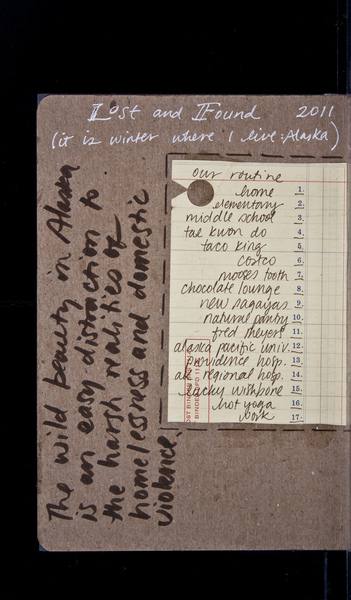 Lost and Found 2011
(it is winter where I live: Alaska)
The wild beauty in Alaska
is an easy distraction to
the harsh realities of
homelessness and domestic
violence.
our routine
home 1.
elementary 2.
middle school 3.
tae kwon do 4.
taco king 5.
costco 6.
mooses tooth 7.
chocolate lounge 8.
new sagayas 9.
natural pantry 10.
fred meyers 11.
alaska pacific univ. 12.
providence hosp. 13.
ak regional hosp. 14.
lucky wishbone 15.
hot yoga 16.
work 17.